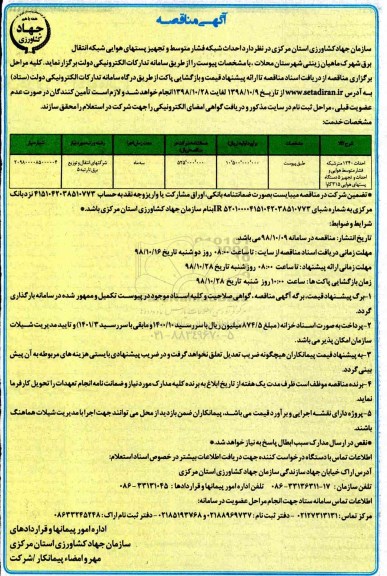 آگهی مناقصه
جهاد کشاورزی
سازمان جهاد کشاورزی استان مرکزی در نظر دارد احداث شبکه فشار متوسط و تجهیز پستهای هوایی شبکه انتقال
برق شهرک ماهیان زینتی شهرستان محلات ، با مشخصات پیوست را از طریق سامانه تدارکات الکترونیکی دولت برگزار نماید. کلیه مراحل
برگزاری مناقصه از دریافت اسناد مناقصه تا ارائه پیشنهاد قیمت و بازگشایی پاکت از طریق درگاه سامانه تدارکات الکترونیکی دولت (ستاد)
به آدرس www.setadiran.ir از تاریخ ۱۳۹۸/۱۰/۹ لغایت ۱۳۹۸/۱۰/۲۸ انجام خواهد شد و لازم است تأمین کنندگان در صورت عدم
عضویت قبلی ، مراحل ثبت نام در سایت مذکور و دریافت گواهی امضای الکترونیکی را جهت شرکت در استعلام را محقق سازند.
مشخصات خدمت:
احداث ۱۲۴۰ متر شبکه فشار متوسط هوایی و احداث و تجهیز ۵ دستگاه پستهای هوایی
طبق پیوست
سه ماه
شرکتهای انتقال و توزیع برق
* تضمین شرکت در مناقصه میبایست بصورت ضمانتنامه بانکی، اوراق مشارکت یا واریز وجه نقد به حساب ۴۱۵۱۰۴۲۰۳۸۵۱۰۷۷۳ نزد بانک
مرکزی به شماره شبای IR۵۲۰۱۰۰۰۰۴۱۵۱۰۴۲۰۳۸۵۱۰۷۷۳ بنام سازمان جهاد کشاورزی استان مرکزی باشد.*
شرایط و ضوابط:
تاریخ انتشار: مناقصه در سامانه ۹۸/۱۰/۰۹ می باشد.
مهلت زمانی دریافت اسناد مناقصه از سایت: تا ساعت ۰۸:۰۰ روز دو شنبه تاریخ ۹۸/۱۰/۱۶
مهلت زمانی ارائه پیشنهاد: تا ساعت ۰۸:۰۰ روز شنبه تاریخ ۹۸/۱۰/۲۸
زمان بازگشایی پاکت ها: ساعت ۱۰:۰۰ روز شنبه تاریخ ۹۸/۱۰/۲۸
۱-برگ پیشنهاد قیمت، برگه آگهی مناقصه، گواهی صلاحیت و کلیه اسناد موجود در پیوست تکمیل و ممهور شده در سامانه بارگذاری
گردد.
۲- پرداخت به صورت اسناد خزانه (مبلغ ۸۷۴/۵ میلیون ریال با سررسید ۱۴۰۰/۱۰ و مابقی با سررسید ۱۴۰۱/۳) و تایید مدیریت شیلات
سازمان امکان پذیر می باشد.
۳-به پیشنهاد قیمت پیمانکاران هیچگونه ضریب تعدیل تعلق نخواهد گرفت و در ضریب پیشنهادی بایستی هزینه های مربوطه به آن پیش
بینی گردد.
۴-برنده مناقصه موظف است ظرف مدت یک هفته از تاریخ ابلاغ به برنده کلیه مدارک مورد نیاز و ضمانت نامه انجام تعهدات را تحویل کارفرما
نماید.
۵-پروژه دارای نقشه اجرایی و برآورد قیمت می باشد، پیمانکاران ضمن بازدید از محل می توانند جهت اجرا با مدیریت شیلات هماهنگ
باشند.
* نقص در ارسال مدارک سبب ابطال پاسخ به نیاز خواهد شد.*
اطلاعات تماس با دستگاه درخواست کننده جهت دریافت اطلاعات بیشتر در خصوص اسناد استعلام:
آدرس اراک خیابان جهاد سازندگی سازمان جهاد کشاورزی استان مرکزی
تلفن سازمان : ۱۷-۳۳۱۳۶۳۱۱-۰۸۶ تلفن اداره امور پیمانها و قراردادها : ۳۳۱۳۱۰۴۵-۰۸۶
اطلاعات تماس سامانه ستاد جهت انجام مراحل عضویت در سامانه:
مرکز تماس: ۰۲۱۲۷۳۱۳۱۳۱ - دفتر ثبت نام : ۰۲۱۸۸۹۶۹۷۳۷ و ۰۲۱۸۵۱۹۳۷۶۸ - دفتر ثبت نام اراک : ۰۸۶۳۳۲۴۵۲۴۸
اداره امور پیمانها و قراردادهای
سازمان جهاد کشاورزی استان مرکزی
مهر و امضاء پیمانکار / شرکت